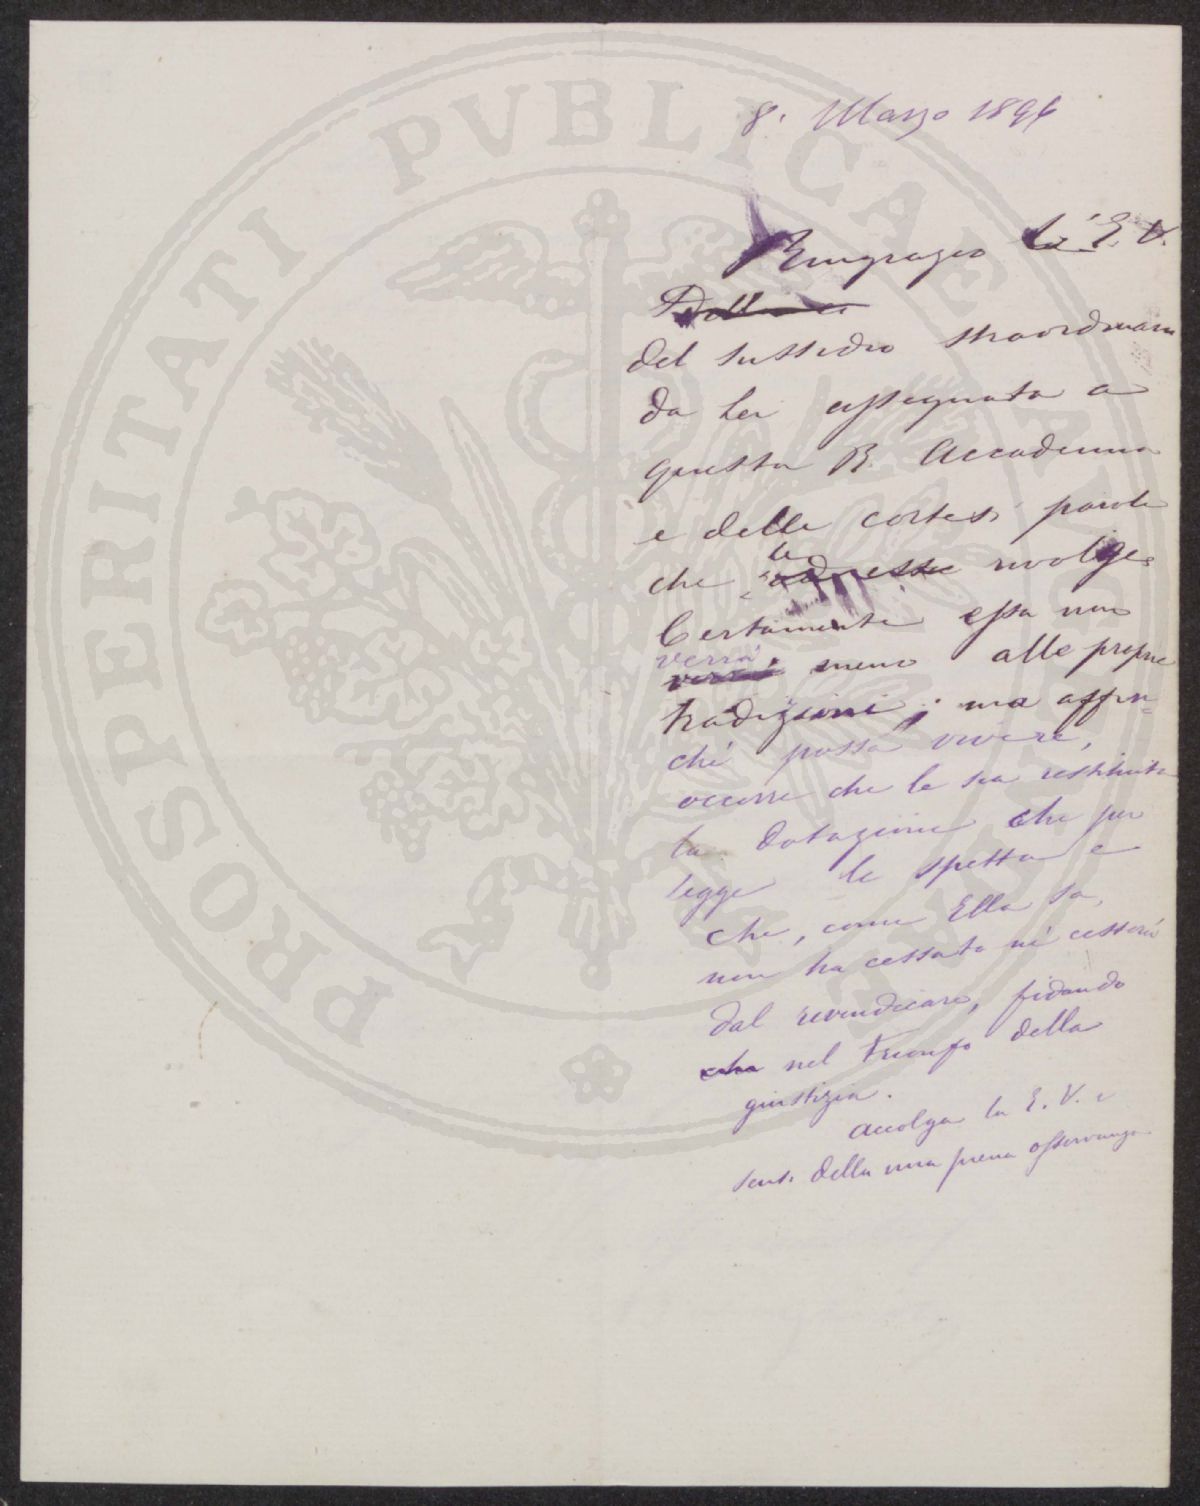 PROSPERITATI PVBLICAE AVGENDAE
8. Marzo 1896
Ringrazio la E. V.
del sussidio straordinario
da Lei assegnato a
questa R. Accademia
e delle cortesi parole
che le ad essa rivolge.
Certamente essa non
verrà
verrà meno alle proprie
tradizioni; ma affin=
chè possa vivere,
occorre che le sia restituita
la dotazione che per
legge le spetta e
che, come Ella sa,
non ha cessato nè cesserà
dal rivendicare, fidando
che nel trionfo della
giustizia.
Accolga la E. V. i
sensi della mia piena osservanza